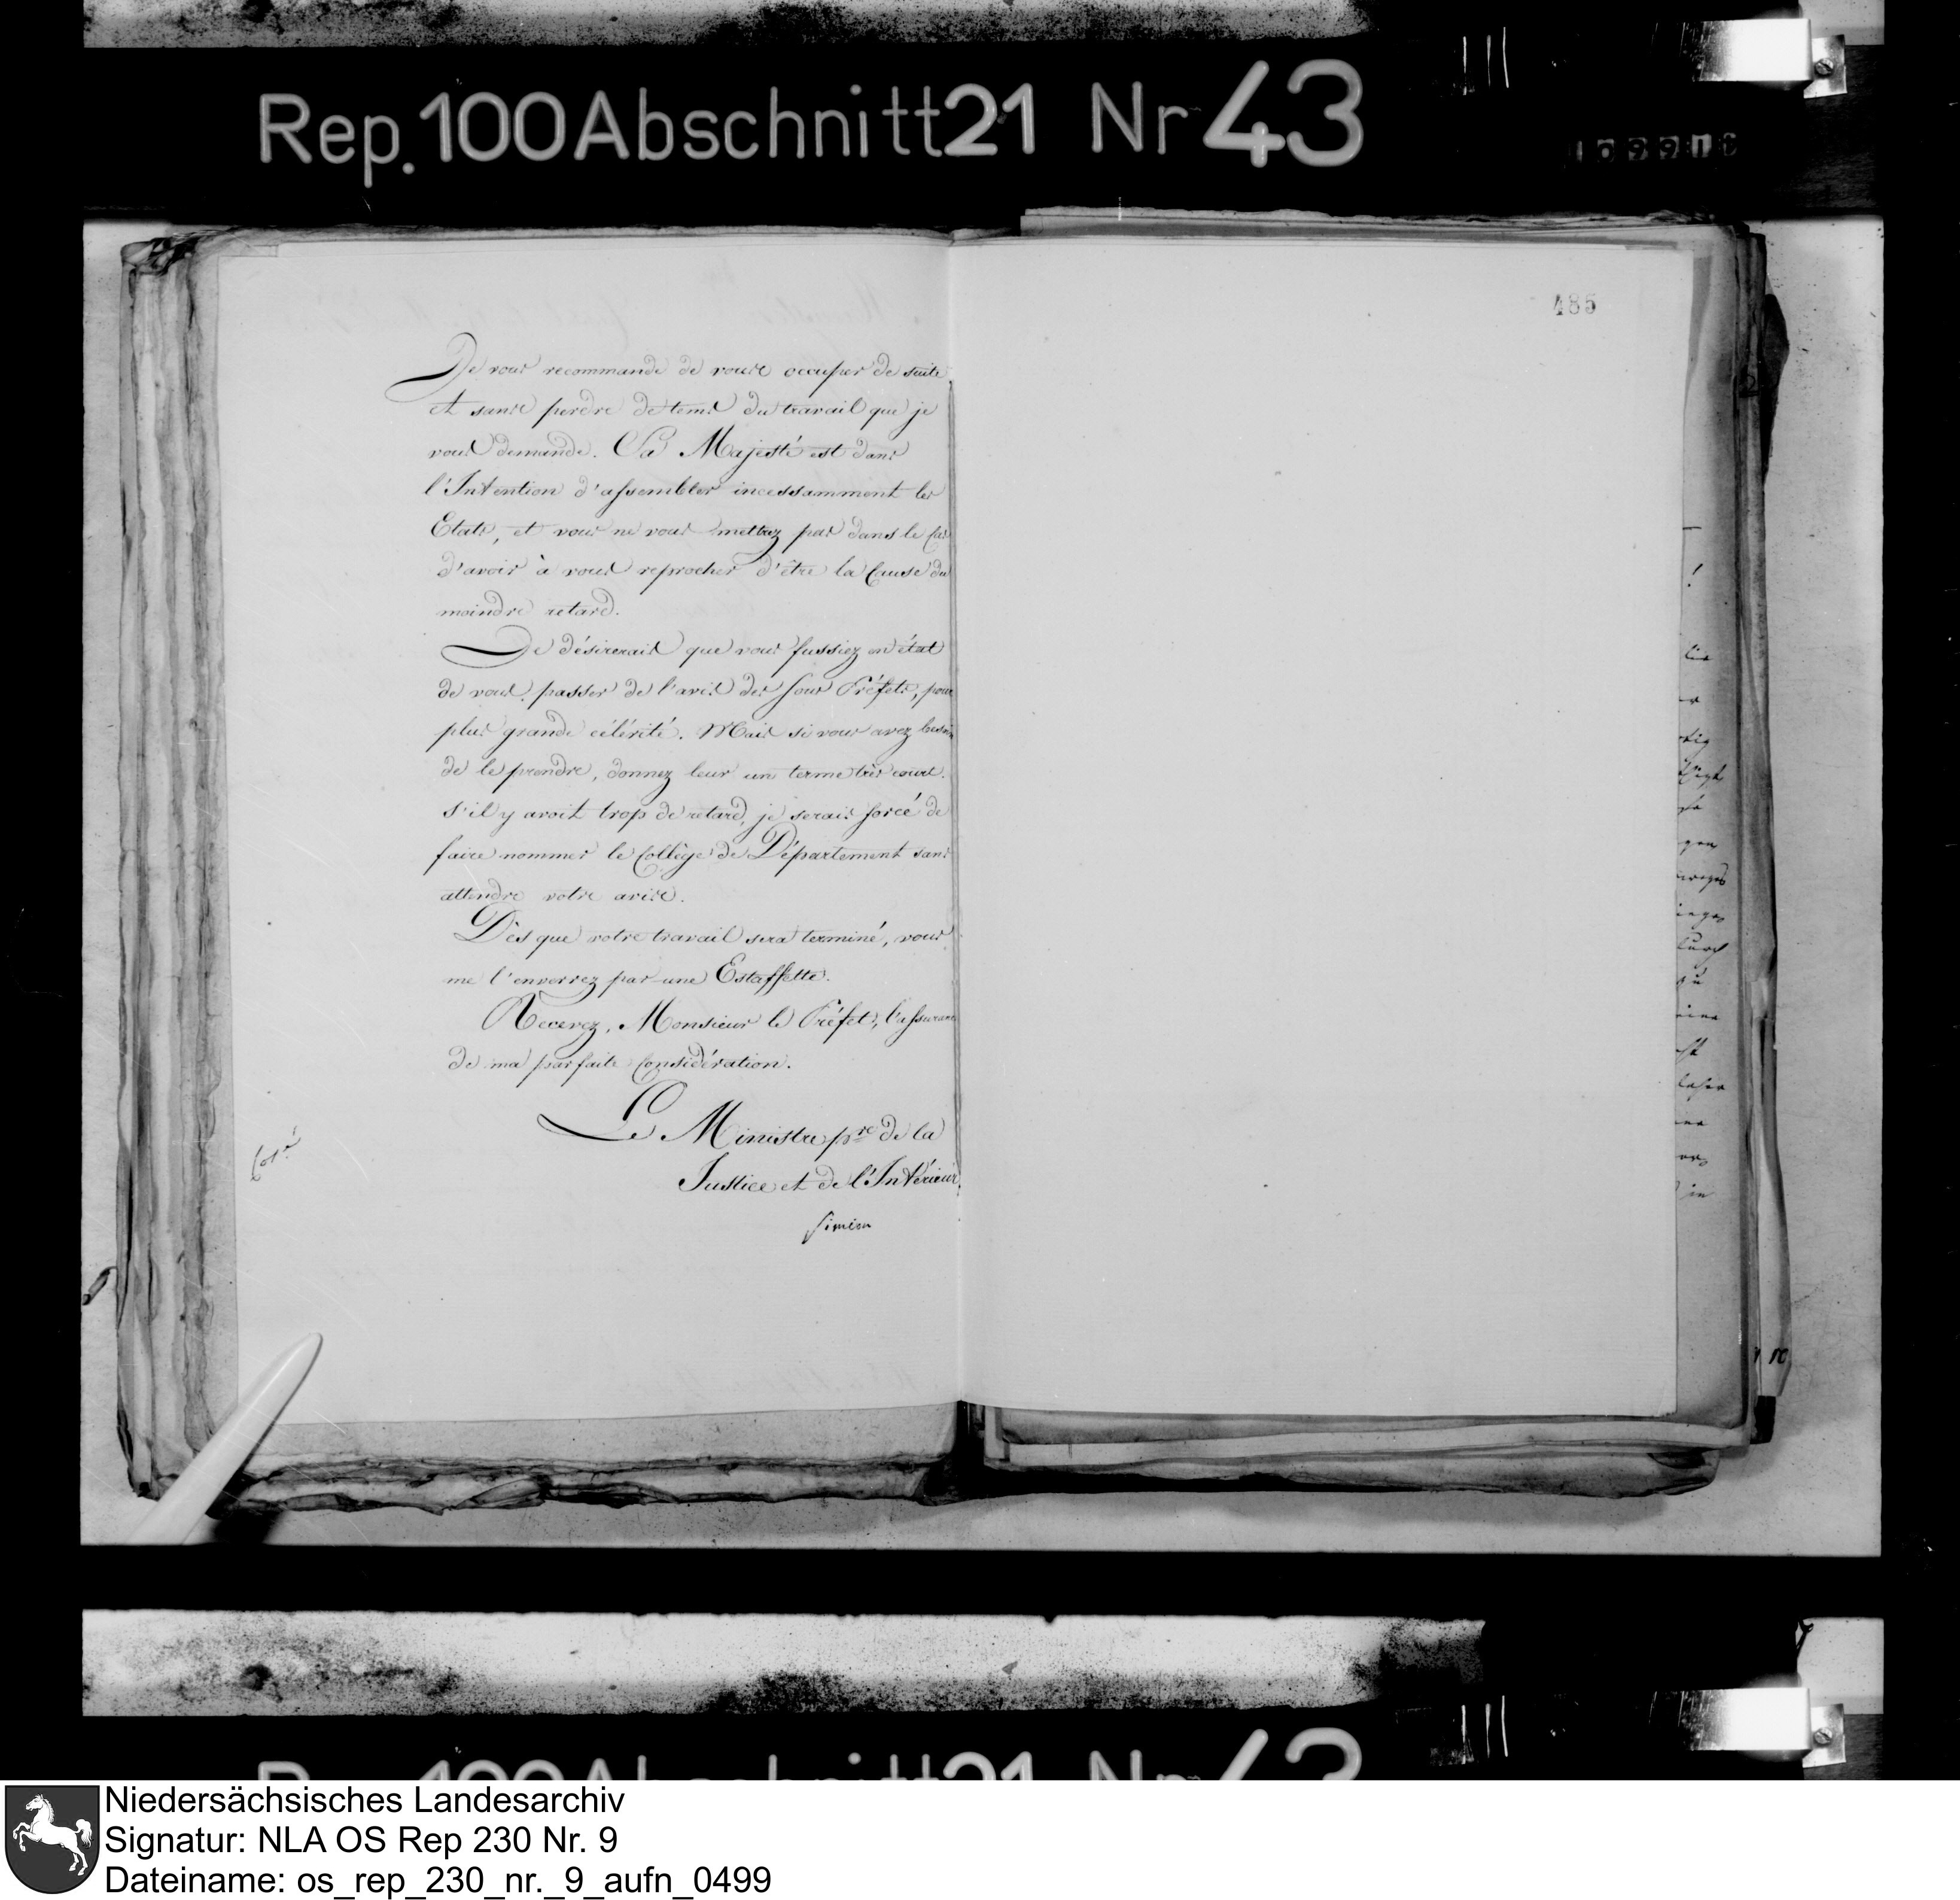 Rep. 100 Abschnitt 21 Nr 43
485
Je vous recommande de vous occuper de suite
et sans perdre de tems du travail que je
vous demande. Sa Majesté est dans
l'Intention d'assembler incessamment les
Etats, et vous ne vous mettrez pas dans le Cas
d'avoir à vous reprocher d'être la Cause du
moindre retard.
Je désirerais que vous fussiez en état
de vous passer de l'avis des sous Préfets, pour
plus grande célérité. Mais si vous avez besoin
de le prendre, donnez leur un terme très court.
s'il y avoit trop de retard, je serais forcé de
faire nommer le Collège de Département sans
attendre votre avis.
Dès que votre travail sera terminé, vous
me l'enverrez par une Estaffette.
Recevez, Monsieur le Préfet, l'assurance
de ma parfaite Considération.
Le Ministre pre de la
Justice et de l'Intérieur.
Simeon
Niedersächsisches Landesarchiv
Signatur: NLA OS Rep 230 Nr. 9
Dateiname: os_rep_230_nr._9_aufn_0499